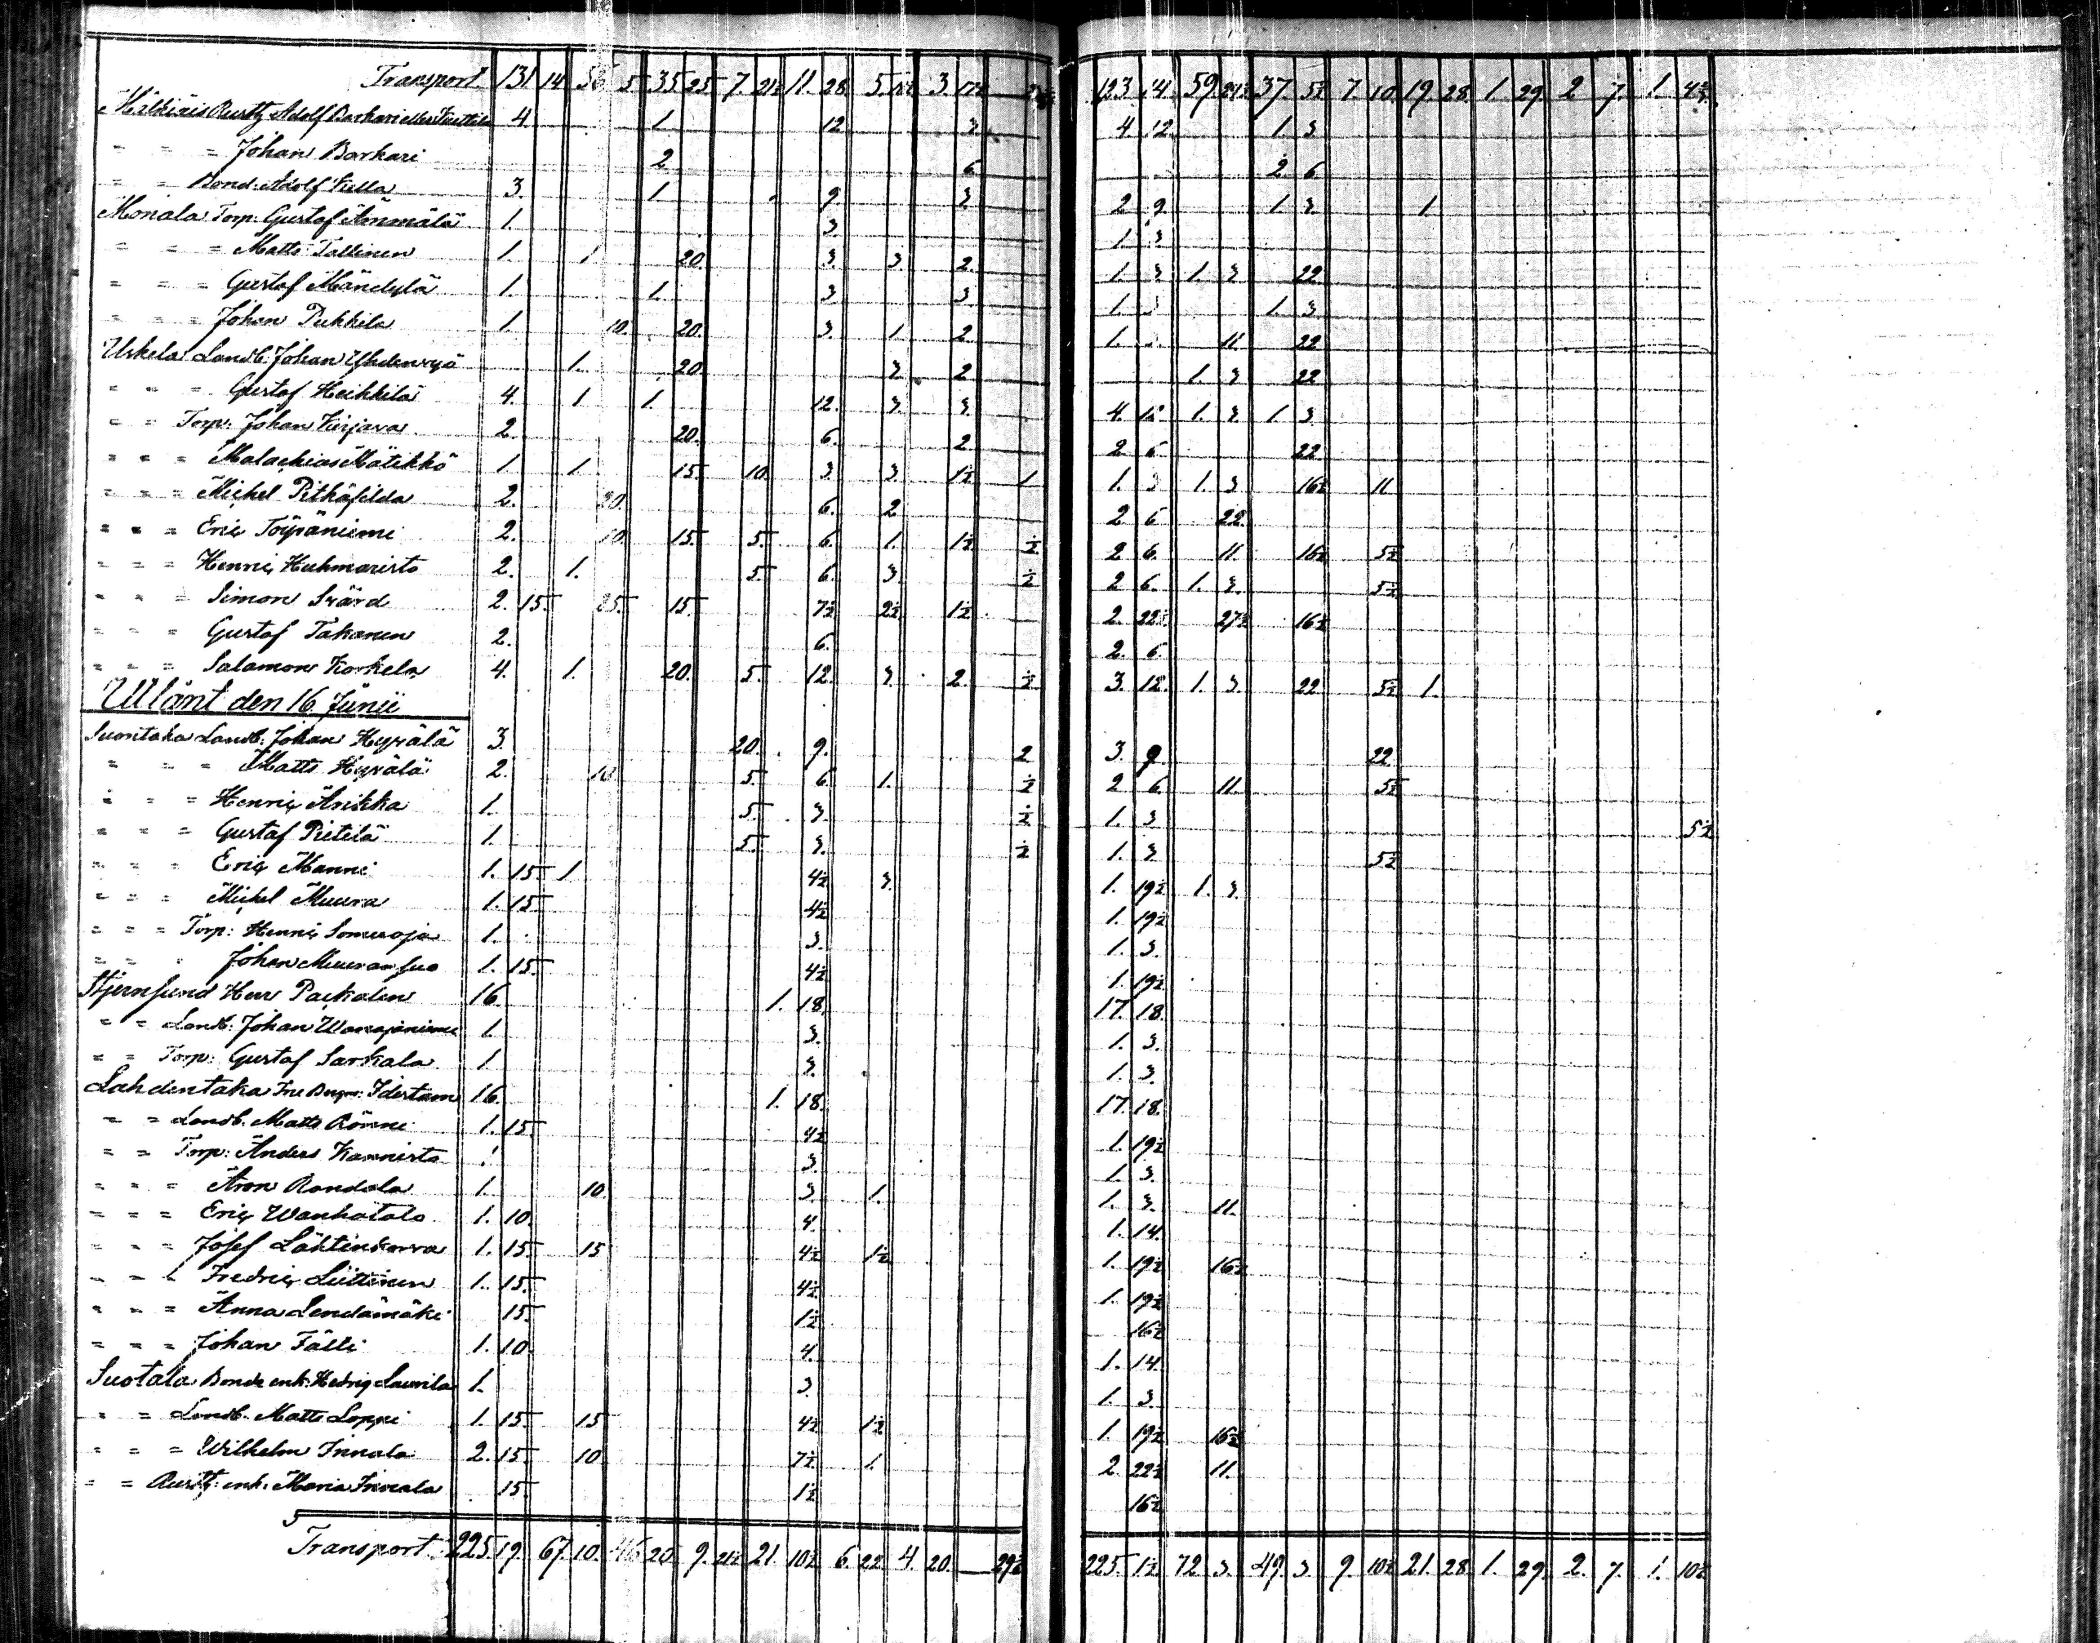 Transport 131 14 56 5 35 25 7 21½ 11 28 5 3 123 14 59 24½ 37 5½ 7 10 19 28 1 29 2 7 1 4¾
Rustg Adolf Barkari eller 4 1 12 3 4 12 1 3
= = = Johan Barkari 2 6 2 6
= = Bond: Adolf Killa 3 1 9 3 2 9 1 3 1
Moriala Torp: Gustaf Ämmälä 1 3 1 3
= = = Matts Tallinen 1 1 20 3 3 2 1 3 1 3 22
= = = Gustaf Mändylä 1 1 3 3 1 3 1 3
= = = Johan Pukkila 1 10 20 3 1 2 1 3 11 22
Uskela Landb: Johan Yhdensyjä 1 20 3 2 1 3 22
= = = Gustaf Heikkilä 4 1 1 12 3 3 4 12 1 3 1 3
= = Torp: Johan Kirjava 2 20 6 2 2 6 22
= = = Malachias Mätikkö 1 1 15 10 3 3 1½ 1 1 3 1 3 16½ 11
= = = Michel 2 20 6 2 2 6 22
= = = Eric Törpäniemi 2 10 15 5 6 1 1½ ½ 2 6 11 16½ 5½
= = = Henric Huhmaristo 2 1 5 6 3 ½ 2 6 1 3 5½
= = = Simon Svärd 2 15 25 15 7½ 2½ 1½ 2 22½ 27½ 16½
= = = Gustaf Takanen 2 6 2 6
= = = Salamon Korkela 4 1 20 5 12 3 2 ½ 3 12 1 3 22 5½ 1
Utlånt den 16 Junii
Suontaka Landb: Johan Hyrälä 3 20 9 2 3 9 22
= = = Matts Hyrälä 2 10 5 6 1 ½ 2 6 11 5½
= = = Henric Anikka 1 5 3 ½ 1 3 5½
= = = Gustaf Pietilä 1 5 3 ½ 1 3 5½
= = = Eric Manni 1 15 1 4½ 3 1 19½ 1 3
= = = Michel Muura 1 15 4½ 1 19½
= = = Torp: Henric Someroja 1 3 1 3
= = = Johan Muuransuo 1 15 4½ 1 19½
Stjernsund Herr Packalen 16 1 18 17 18
= = Landb: Johan 1 3 1 3
= = Torp: Gustaf Sarkala 1 3 1 3
Lahdentaka Idestam 16 1 18 17 18
= = Landb. Matts Rönni 1 15 4½ 1 19½
= = Torp: Anders Kannisto 1 3 1 3
= = = Aron Randala 1 10 3 1 1 3 11
= = = Eric Wanhatalo 1 10 4 1 14
= = = Josef 1 15 15 4½ 1½ 1 19½ 16½
= = = Fredric Liittinen 1 15 4½ 1 19½
= = = Anna Lendämäki 15 1½ 16½
= = = Johan Tälli 1 10 4 1 14
Suotala Bonde enk: Hedvig Laurila 1 3 1 3
= = Landb. Matts Loppi 1 15 15 4½ 1½ 1 19½ 16½
= = = Wilhelm Innala 2 15 10 7½ 1 2 22½ 11
= = Rustg: enk: Maria 15 1½ 16½
Transport 225 19 67 10 46 20 9 21½ 21 10½ 6 22 4 20 — 29½ 225 1½ 72 3 49 3 9 10½ 21 28 1 29 2 7 1 10½